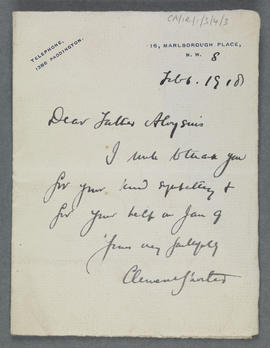 CA/IR/1/3/4/3
TELEPHONE,
1396 PADDINGTON.
16, MARLBOROUGH PLACE,
N.W. 8
Feb 6. 1918
Dear Father Aloysius
I write to thank you
for your kind sympathy &
for your help on Jan 9
Yours very faithfully
Clement Shorter